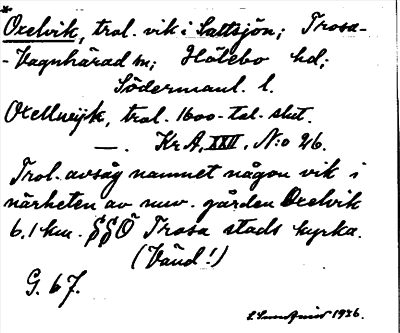 * Oxelvik, trol. vik i Saltsjön; Trosa-
-Vagnhärad sn; Hölebo hd;
Södermanl. l.
Oxellwijk, trol. 1600-tal. slut.
—. KrA, XXII, N:o 26.
Trol. avsåg namnet någon vik i
närheten av nuv. gården Oxelvik
6.1 km. SSÖ Trosa stads kyrka.
(Vänd!)
G. 67.
1936.